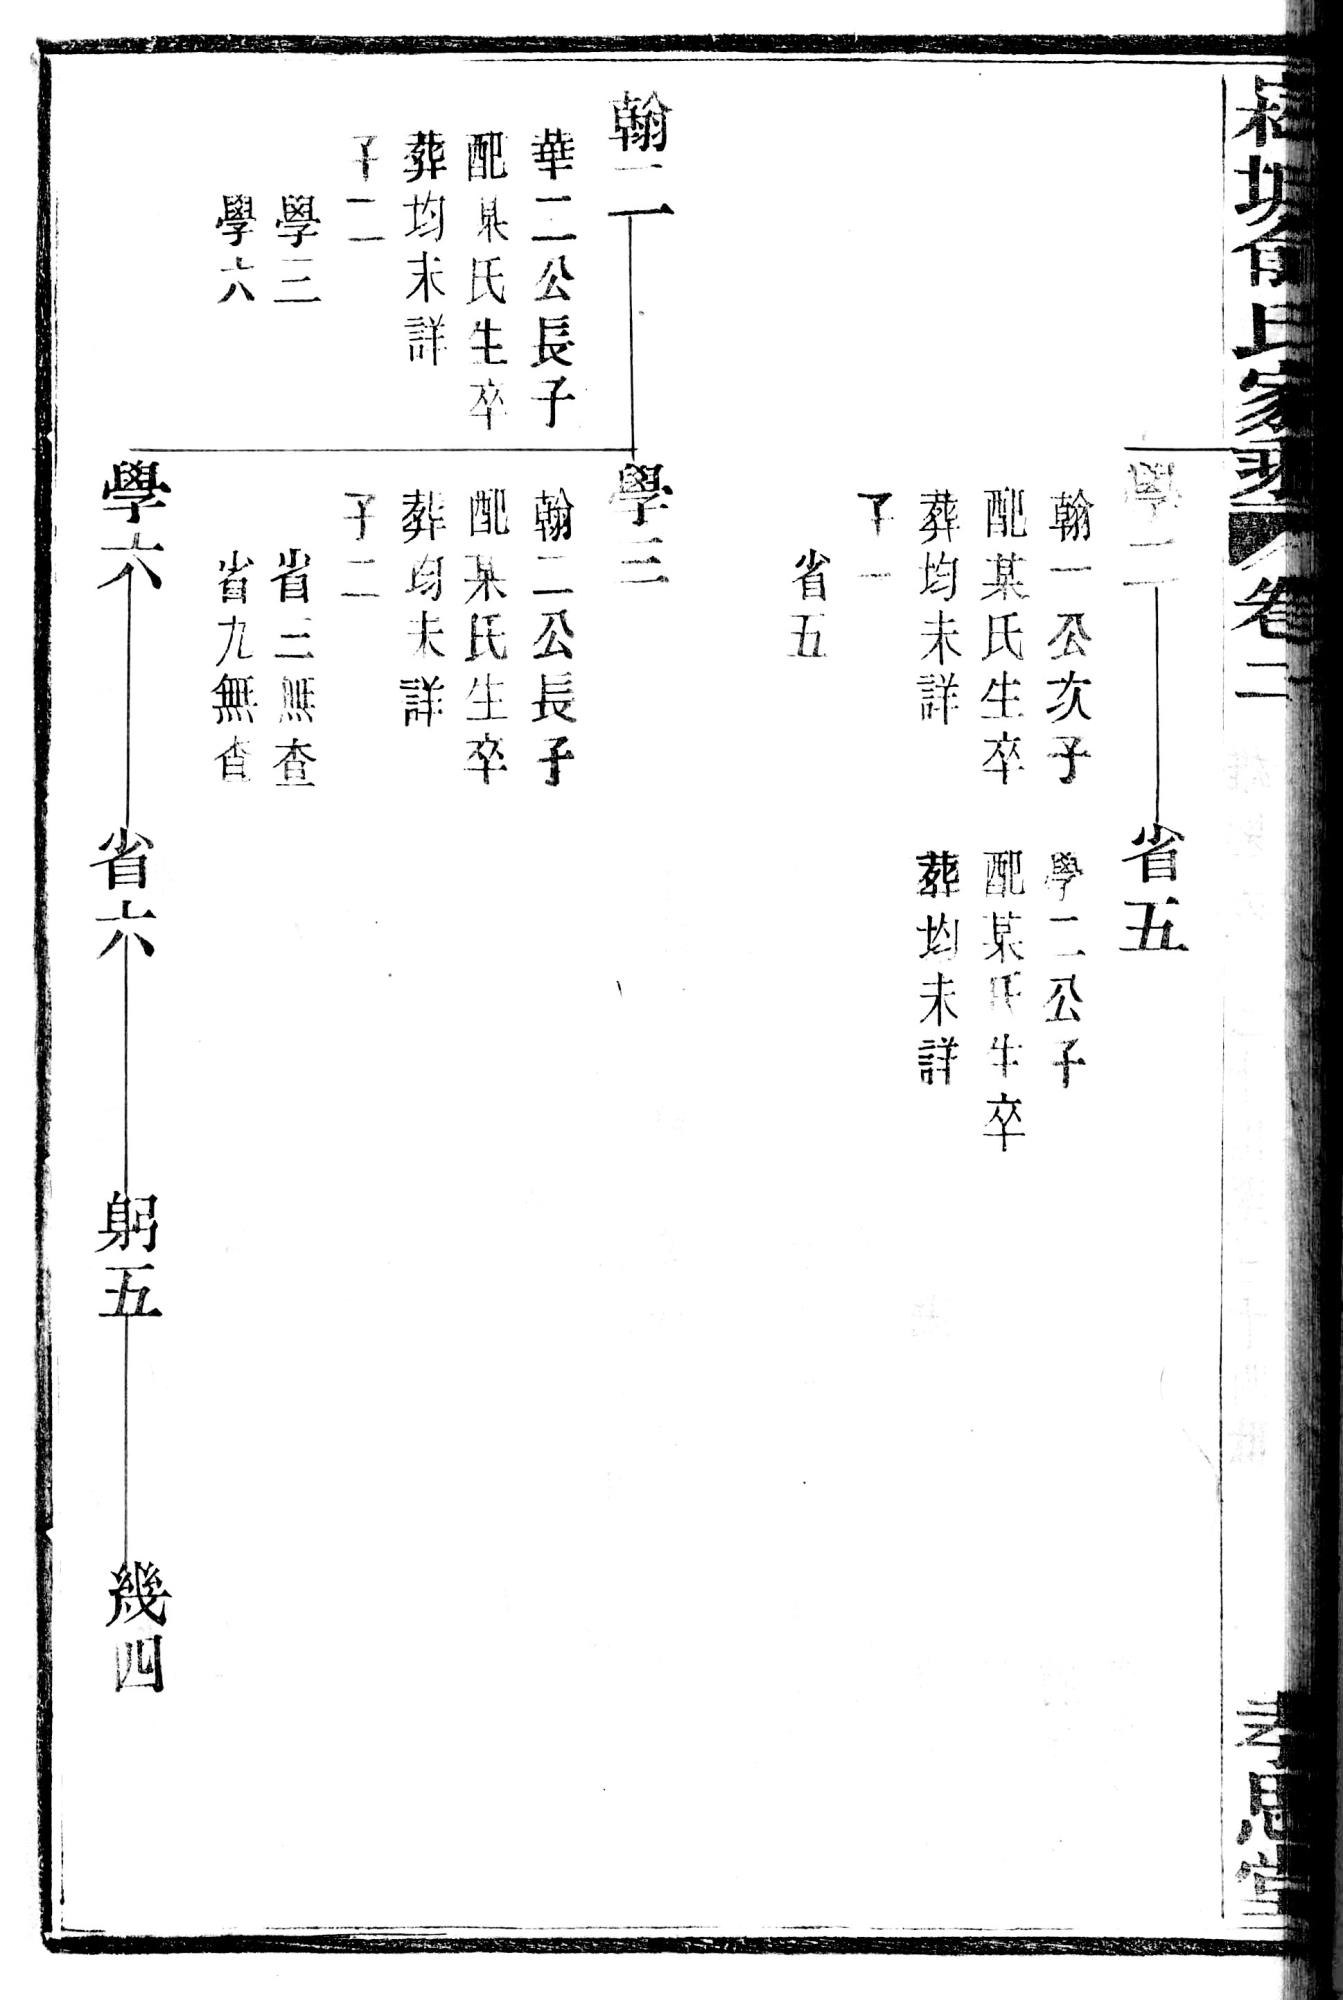 氏家
卷二
孝思堂
學二
翰一公次子
配某氏生卒
葬均未詳
子一
省五
省五
學二公子
配某氏生卒
葬均未詳
翰二
華二公長子
配某氏生卒
葬均未詳
子二
學三
學六
學三
翰二公長子
配某氏生卒
葬均未詳
子二
省三無查
省九無查
學六
省六
躬五
幾四